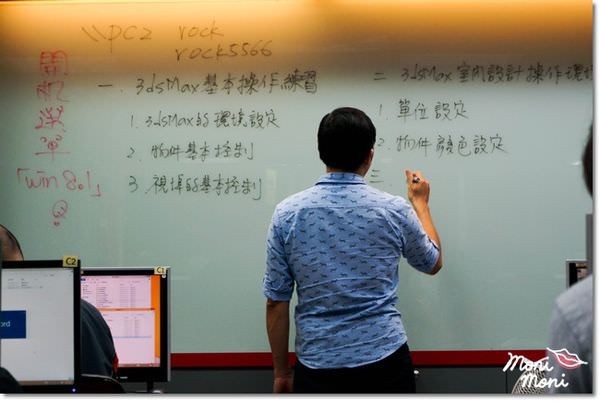 \\pc2 rock
rock5566
開
機
選
單
「win8.1」
一. 3dsMax基本操作練習
1. 3dsMax的環境設定
2. 物件基本控制
3. 視埠的基本控制
二 3dsMax室內設計操作環境
1. 單位設定
2. 物件顏色設定
三
C2
C1
ord
Moni
Moni